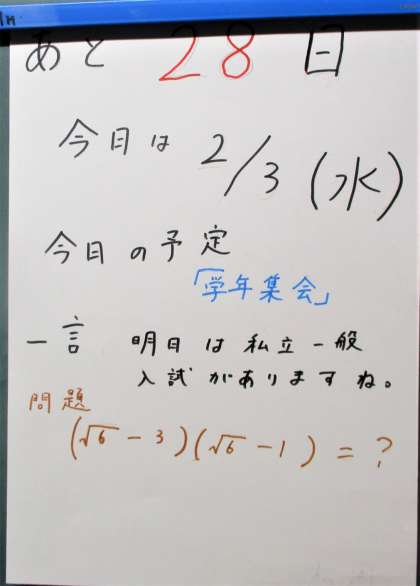 あと 28 日
今日は 2/3 (水)
今日の予定
「学年集会」
一言 明日は私立一般
入試がありますね。
問題
(√6 - 3)(√6 - 1) = ?